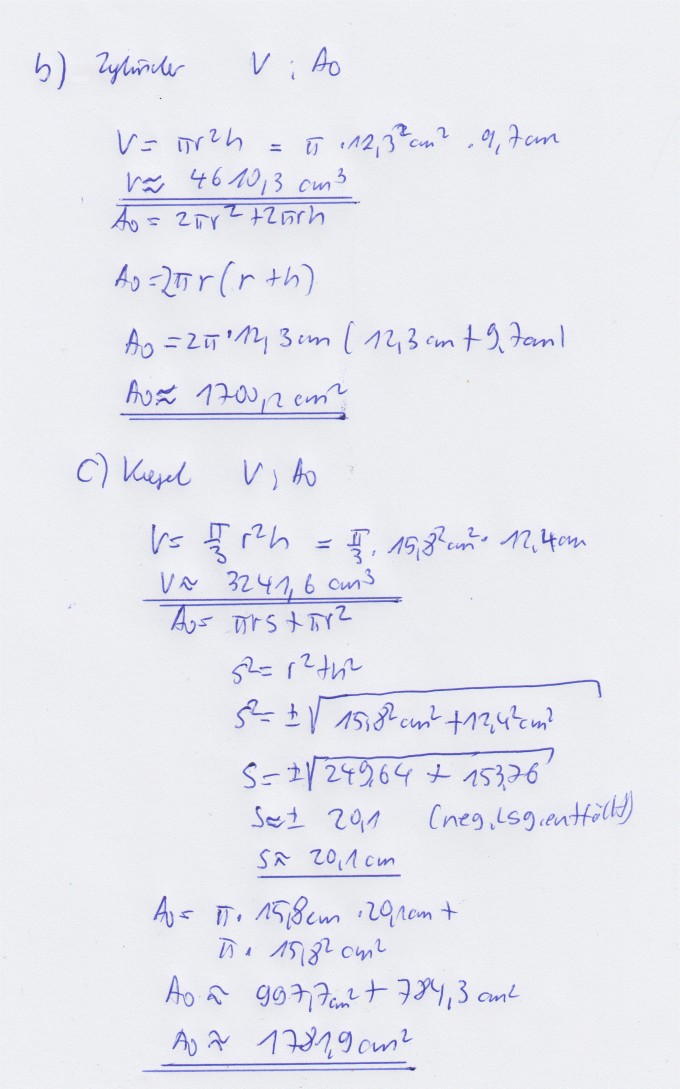 b) Zylinder V ; A₀
V = πr²h = π · 12,3² cm² · 9,7cm
V ≈ 4610,3 cm³
A₀ = 2πr² + 2πrh
A₀ = 2πr(r + h)
A₀ = 2π · 12,3cm (12,3cm + 9,7cm)
A₀ ≈ 1700,2 cm²
c) Kegel V ; A₀
V = π/3 r²h = π/3 · 15,8² cm² · 12,4cm
V ≈ 3241,6 cm³
A₀ = πrs + πr²
s² = r² + h²
s² = ±√15,8² cm² + 12,4² cm²
s = ±√249,64 + 153,76
s ≈ ± 20,1 (neg. Lsg. entfällt)
s ≈ 20,1cm
A₀ = π · 15,8cm · 20,1cm +
π · 15,8² cm²
A₀ ≈ 997,7cm² + 784,3 cm²
A₀ ≈ 1781,9 cm²